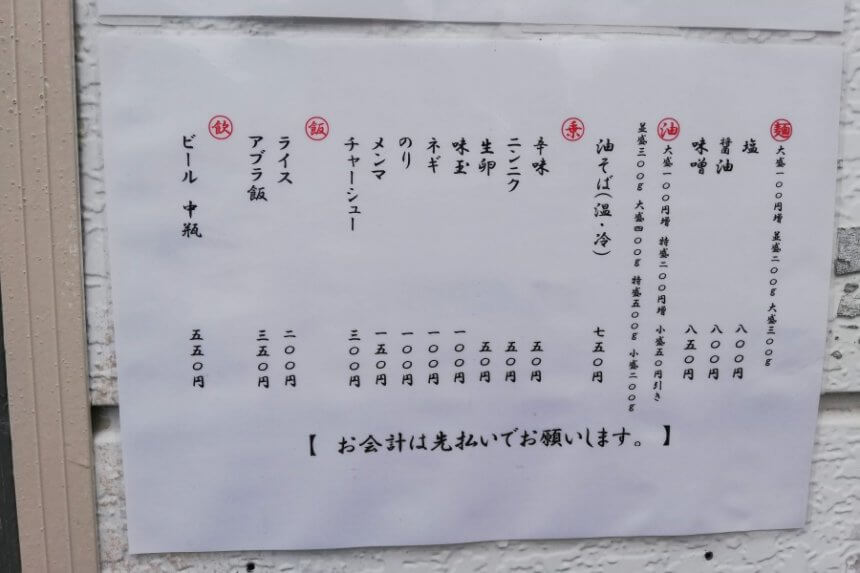 麺 大盛一〇〇円増 並盛二〇〇g 大盛三〇〇g
塩 八〇〇円
醤油 八〇〇円
味噌 八五〇円
油 大盛一〇〇円増 特盛二〇〇円増 小盛五〇円引き
並盛三〇〇g 大盛四〇〇g 特盛五〇〇g 小盛二〇〇g
油そば(温・冷) 七五〇円
乗
辛味 五〇円
ニンニク 五〇円
生卵 五〇円
味玉 一〇〇円
ネギ 一〇〇円
のり 一〇〇円
メンマ 一五〇円
チャーシュー 三〇〇円
飯
ライス 二〇〇円
アブラ飯 三五〇円
飲
ビール 中瓶 五五〇円
【 お会計は先払いでお願いします。 】